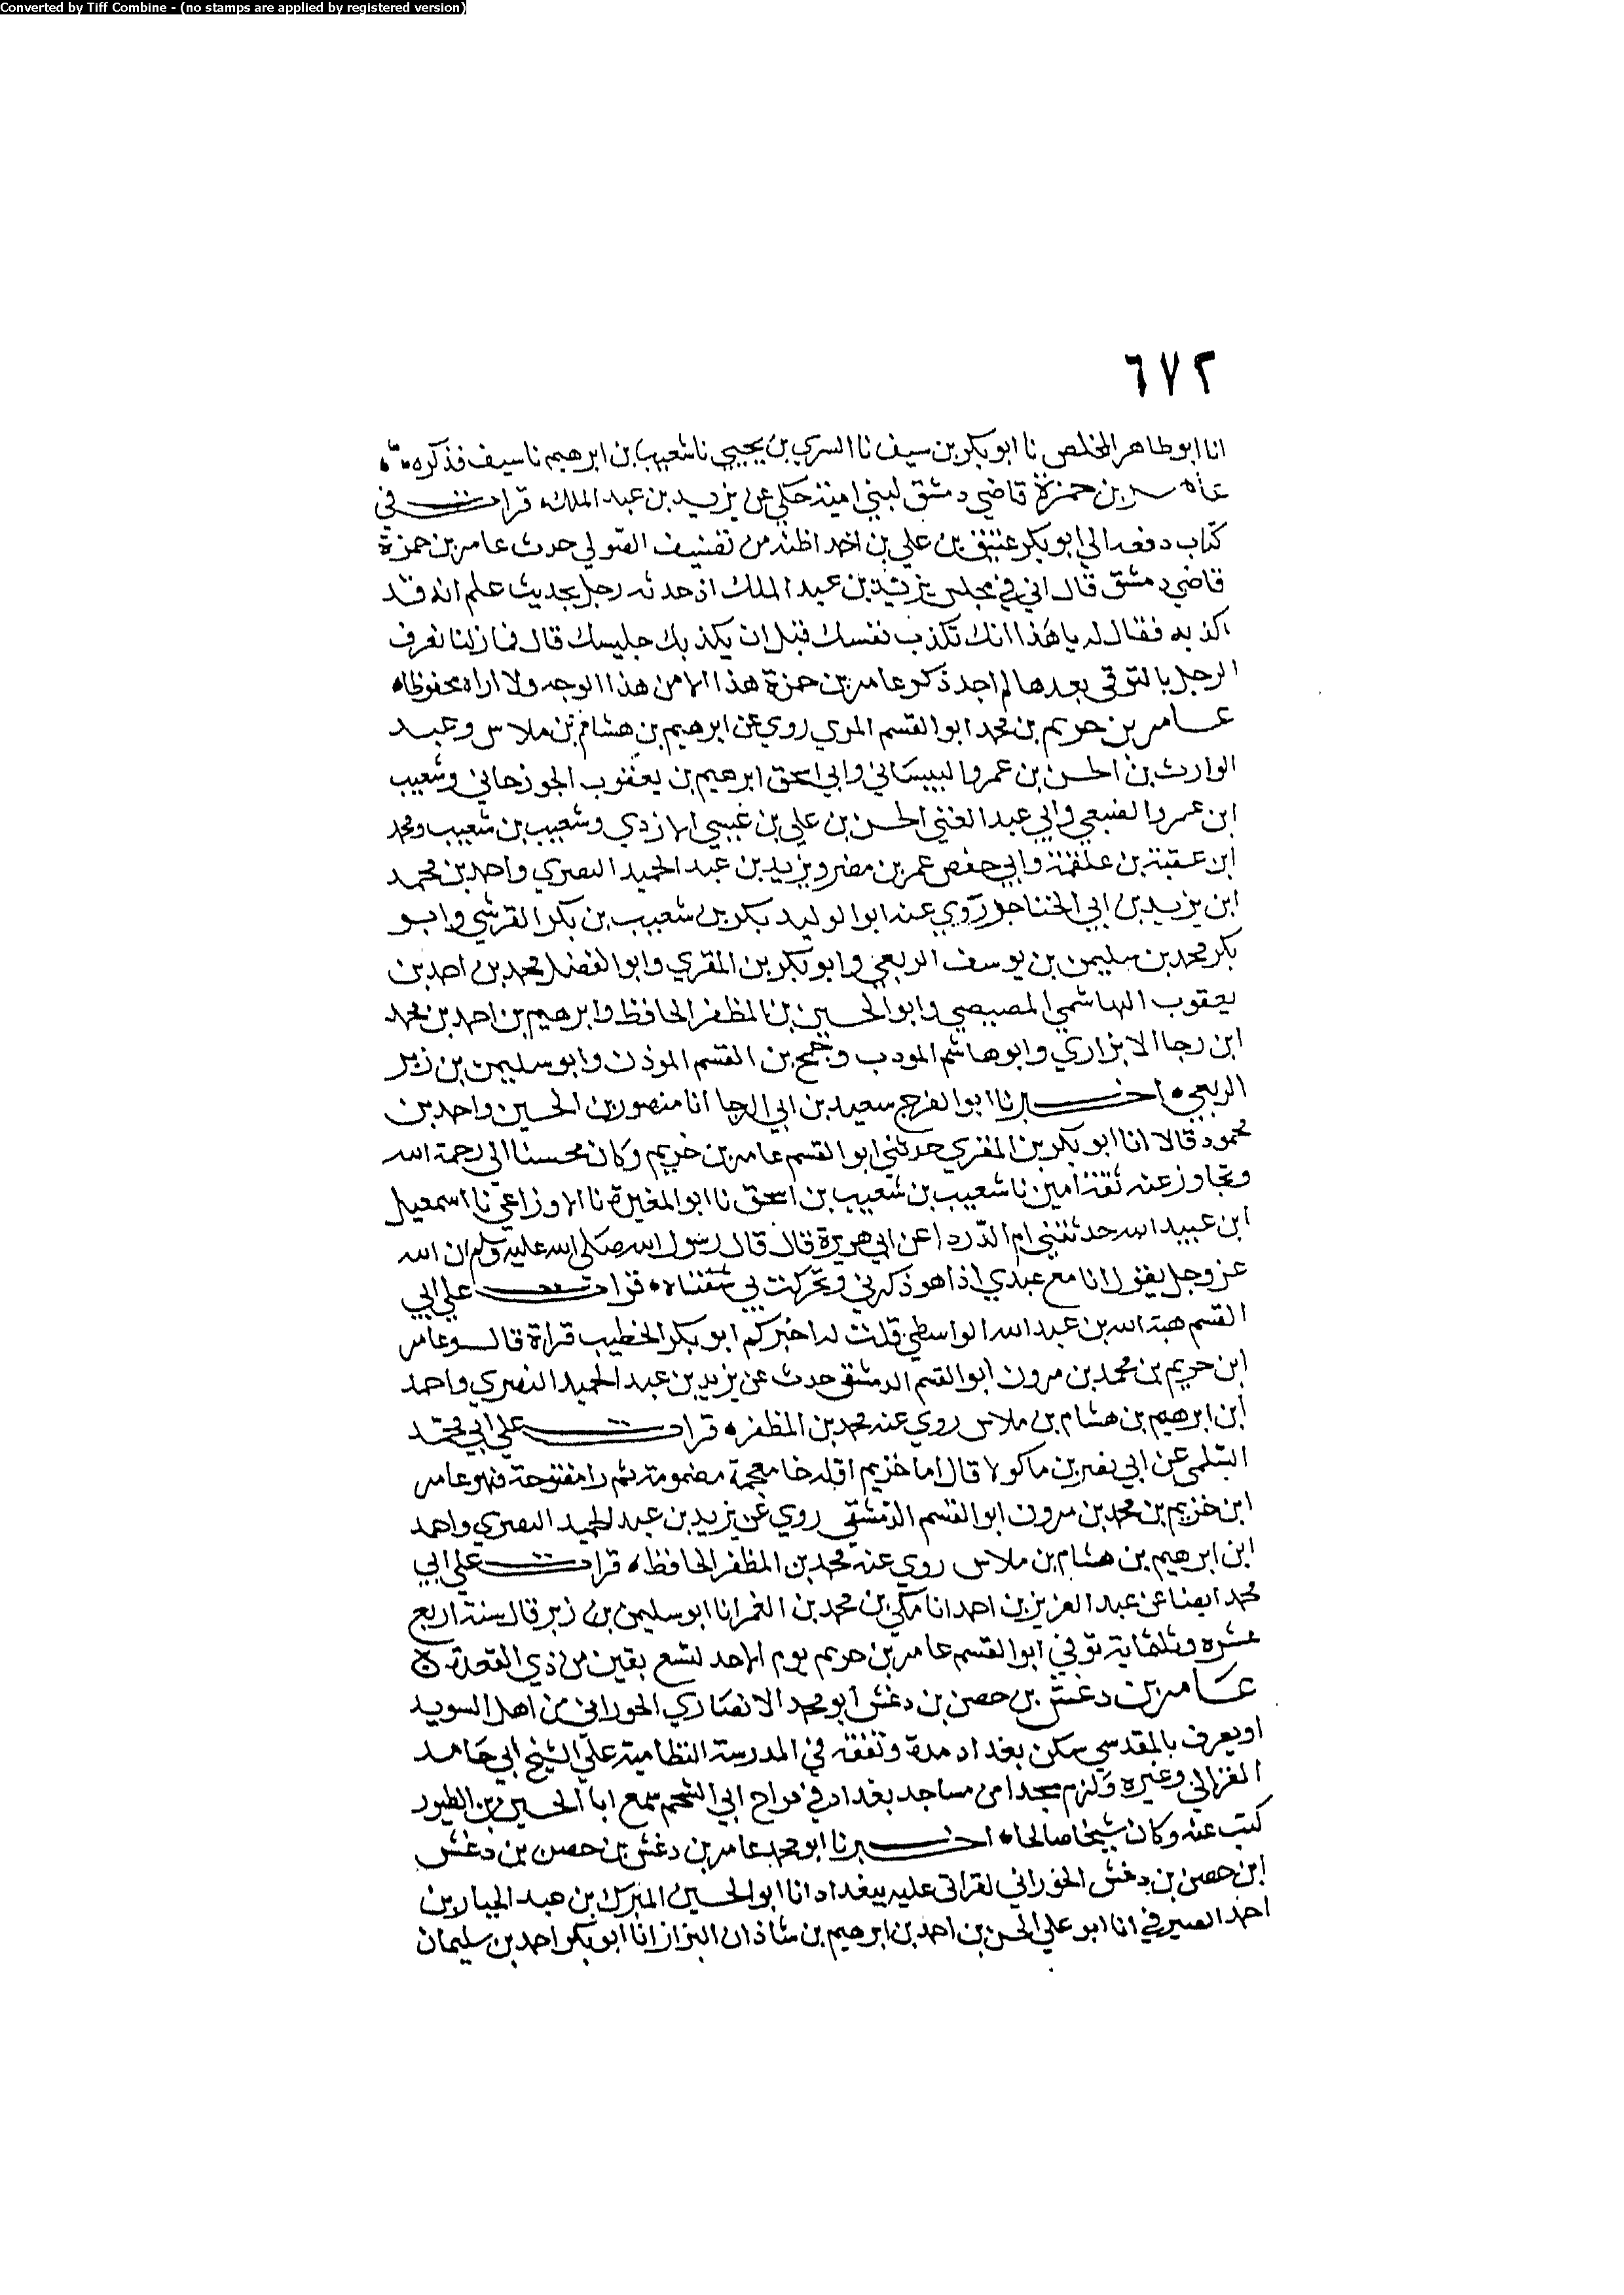 Converted by Tiff Combine - (no stamps are applied by registered version)
٦٧٢
انا ابو طاهر المخلص نا ابو بكر بن سيف نا السري بن يحيي نا شعيب بن ابرهيم نا سيف فذكره
عامر بن حمزة قاضي دمشق لبني امية حكي عن يزيد بن عبد الملك قرات في
كتاب دفعه الي ابو بكر عتيق بن علي بن احمد اظنه من تصنيف الصولي حدث عامر بن حمزة
قاضي دمشق قال اني في مجلس يزيد بن عبد الملك اذ حدثه رجل بحديث علم انه قد
كذبه فقال له يا هذا انك تكذب نفسك قبل ان يكذبك جليسك قال فما زلنا نعرف
الرجل بالتوقي بعدها لم اجد ذكر عامر بن حمزة هذا الا من هذا الوجه ولا اراه محفوظا
عامر بن خريم بن محمد ابو القسم المري روي عن ابرهيم بن هشام بن ملاس وعبد
الوارث بن الحسن بن عمرو البيساني وابي اسحق ابرهيم بن يعقوب الجوزجاني وشعيب
ابن عمرو الضبعي وابي عبد الغني الحسن بن علي بن عيسي الازدي وشعيب بن شعيب ومحمد
ابن عقبة بن علقمة وابي حفص عمر بن مضر ويزيد بن عبد الحميد البصري واحمد بن محمد
ابن يزيد بن ابي الخناجر روي عنه ابو الوليد بكر بن شعيب بن بكر القرشي وابو
بكر محمد بن سليمن بن يوسف الربعي وابو بكر بن المقري وابو الفضل محمد بن احمد بن
يعقوب الهاشمي المصيصي وابو الحسين بن المظفر الحافظ وابرهيم بن احمد بن محمد
ابن رجا الابزاري وابو هاشم المودب وجمح بن القسم الموذن وابو سليمن بن زبر
الربعي اخبرنا ابو الفرج سعيد بن ابي الرجا انا منصور بن الحسين واحمد بن
محمود قالا انا ابو بكر بن المقري حدثني ابو القسم عامر بن خريم وكان محسنا الي رحمة الله
وتجاوز عنه ثقة امين نا شعيب بن شعيب بن اسحق نا ابو المغيرة نا الاوزاعي نا اسمعيل
ابن عبيد الله حدثتني ام الدردا عن ابي هريرة قال قال رسول الله صلى الله عليه وسلم ان الله
عز وجل يقول انا مع عبدي اذا هو ذكرني وتحركت بي شفتاه قرات علي ابي
القسم هبة الله بن عبد الله الواسطي قلت له اخبركم ابو بكر الخطيب قراة قال وعامر
ابن خريم بن محمد بن مرون ابو القسم الدمشقي حدث عن يزيد بن عبد الحميد النصري واحمد
ابن ابرهيم بن هشام بن ملاس روي عنه محمد بن المظفر قرات علي ابي محمد
السلمي عن ابي نصر بن ماكولا قال اما خريم اوله خا معجمة مضمومة ثم را مفتوحة فهو عامر
ابن خريم بن محمد بن مرون ابو القسم الدمشقي روي عن يزيد بن عبد الحميد البصري واحمد
ابن ابرهيم بن هشام بن ملاس روي عنه محمد بن المظفر الحافظ قرات علي ابي
محمد ايضا عن عبد العزيز بن احمد انا مكي بن محمد بن الغمر انا ابو سليمن بن زبر قال سنة اربع
عشره وثلثماية توفي ابو القسم عامر بن خريم يوم الاحد لتسع بقين من ذي القعدة
عامر بن دغش بن حصن بن دغش ابو محمد الانصاري الحوراني من اهل السويد
او يعرف بالمقدسي سكن بغداد مدة وتفقه في المدرسة النظامية علي الشيخ ابي حامد
الغزالي وغيره ولزم مسجدا من مساجد بغداد في دراح ابي الشحم سمع ابا الحسين بن الطيور
كتبت عنه وكان شيخا صالحا اخبرنا ابو محمد عامر بن دغش بن حصن بن دغش
ابن حصن بن دغش الحوراني لقراتي عليه ببغداد انا ابو الحسين المبرك بن عبد الجبار بن
احمد الصيرفي انا ابو علي الحسن بن احمد بن ابرهيم بن شاذان البزاز انا ابو بكر احمد بن سليمان